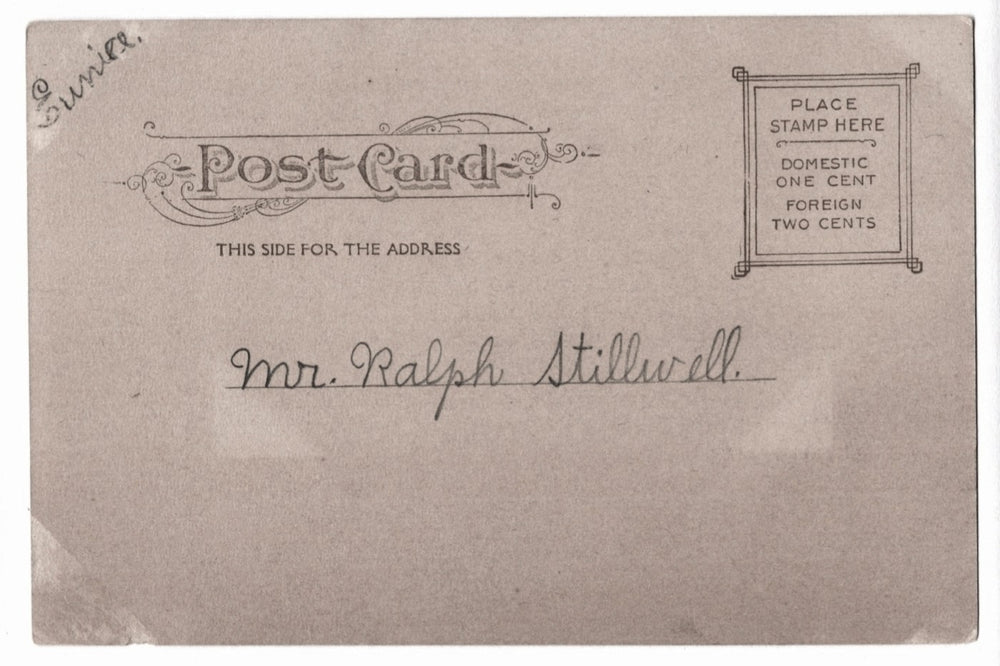 Eunice.
Post Card
THIS SIDE FOR THE ADDRESS
PLACE
STAMP HERE
DOMESTIC
ONE CENT
FOREIGN
TWO CENTS
Mr. Ralph Stillwell.